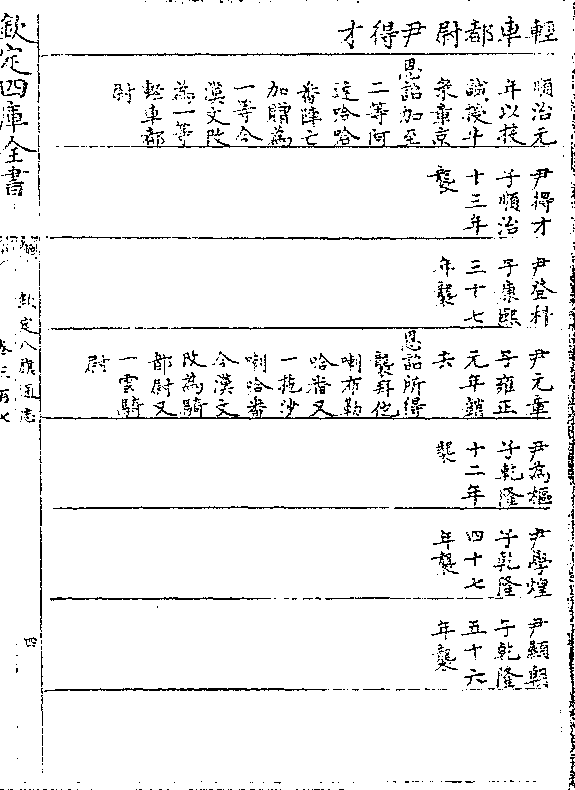 輕車都尉尹得才
順治元
年以投
誠授牛
录章京
恩詔加至
二等阿
達哈哈
番陣亡
加贈為
一等今
漢文改
為一等
輕車都
尉
尹得才
子順治
十三年
襲
尹登科
子康熙
三十七
年襲
尹元章
子雍正
元年銷
去
恩詔所得
襲拜他
喇布勒
哈番又
一拖沙
喇哈番
今漢文
改為騎
都尉又
一雲騎
尉
尹為樞
子乾隆
十二年
襲
尹學煌
子乾隆
四十七
年襲
尹顯朝
子乾隆
五十六
年襲
欽定四庫全書
欽定八旗通志
四